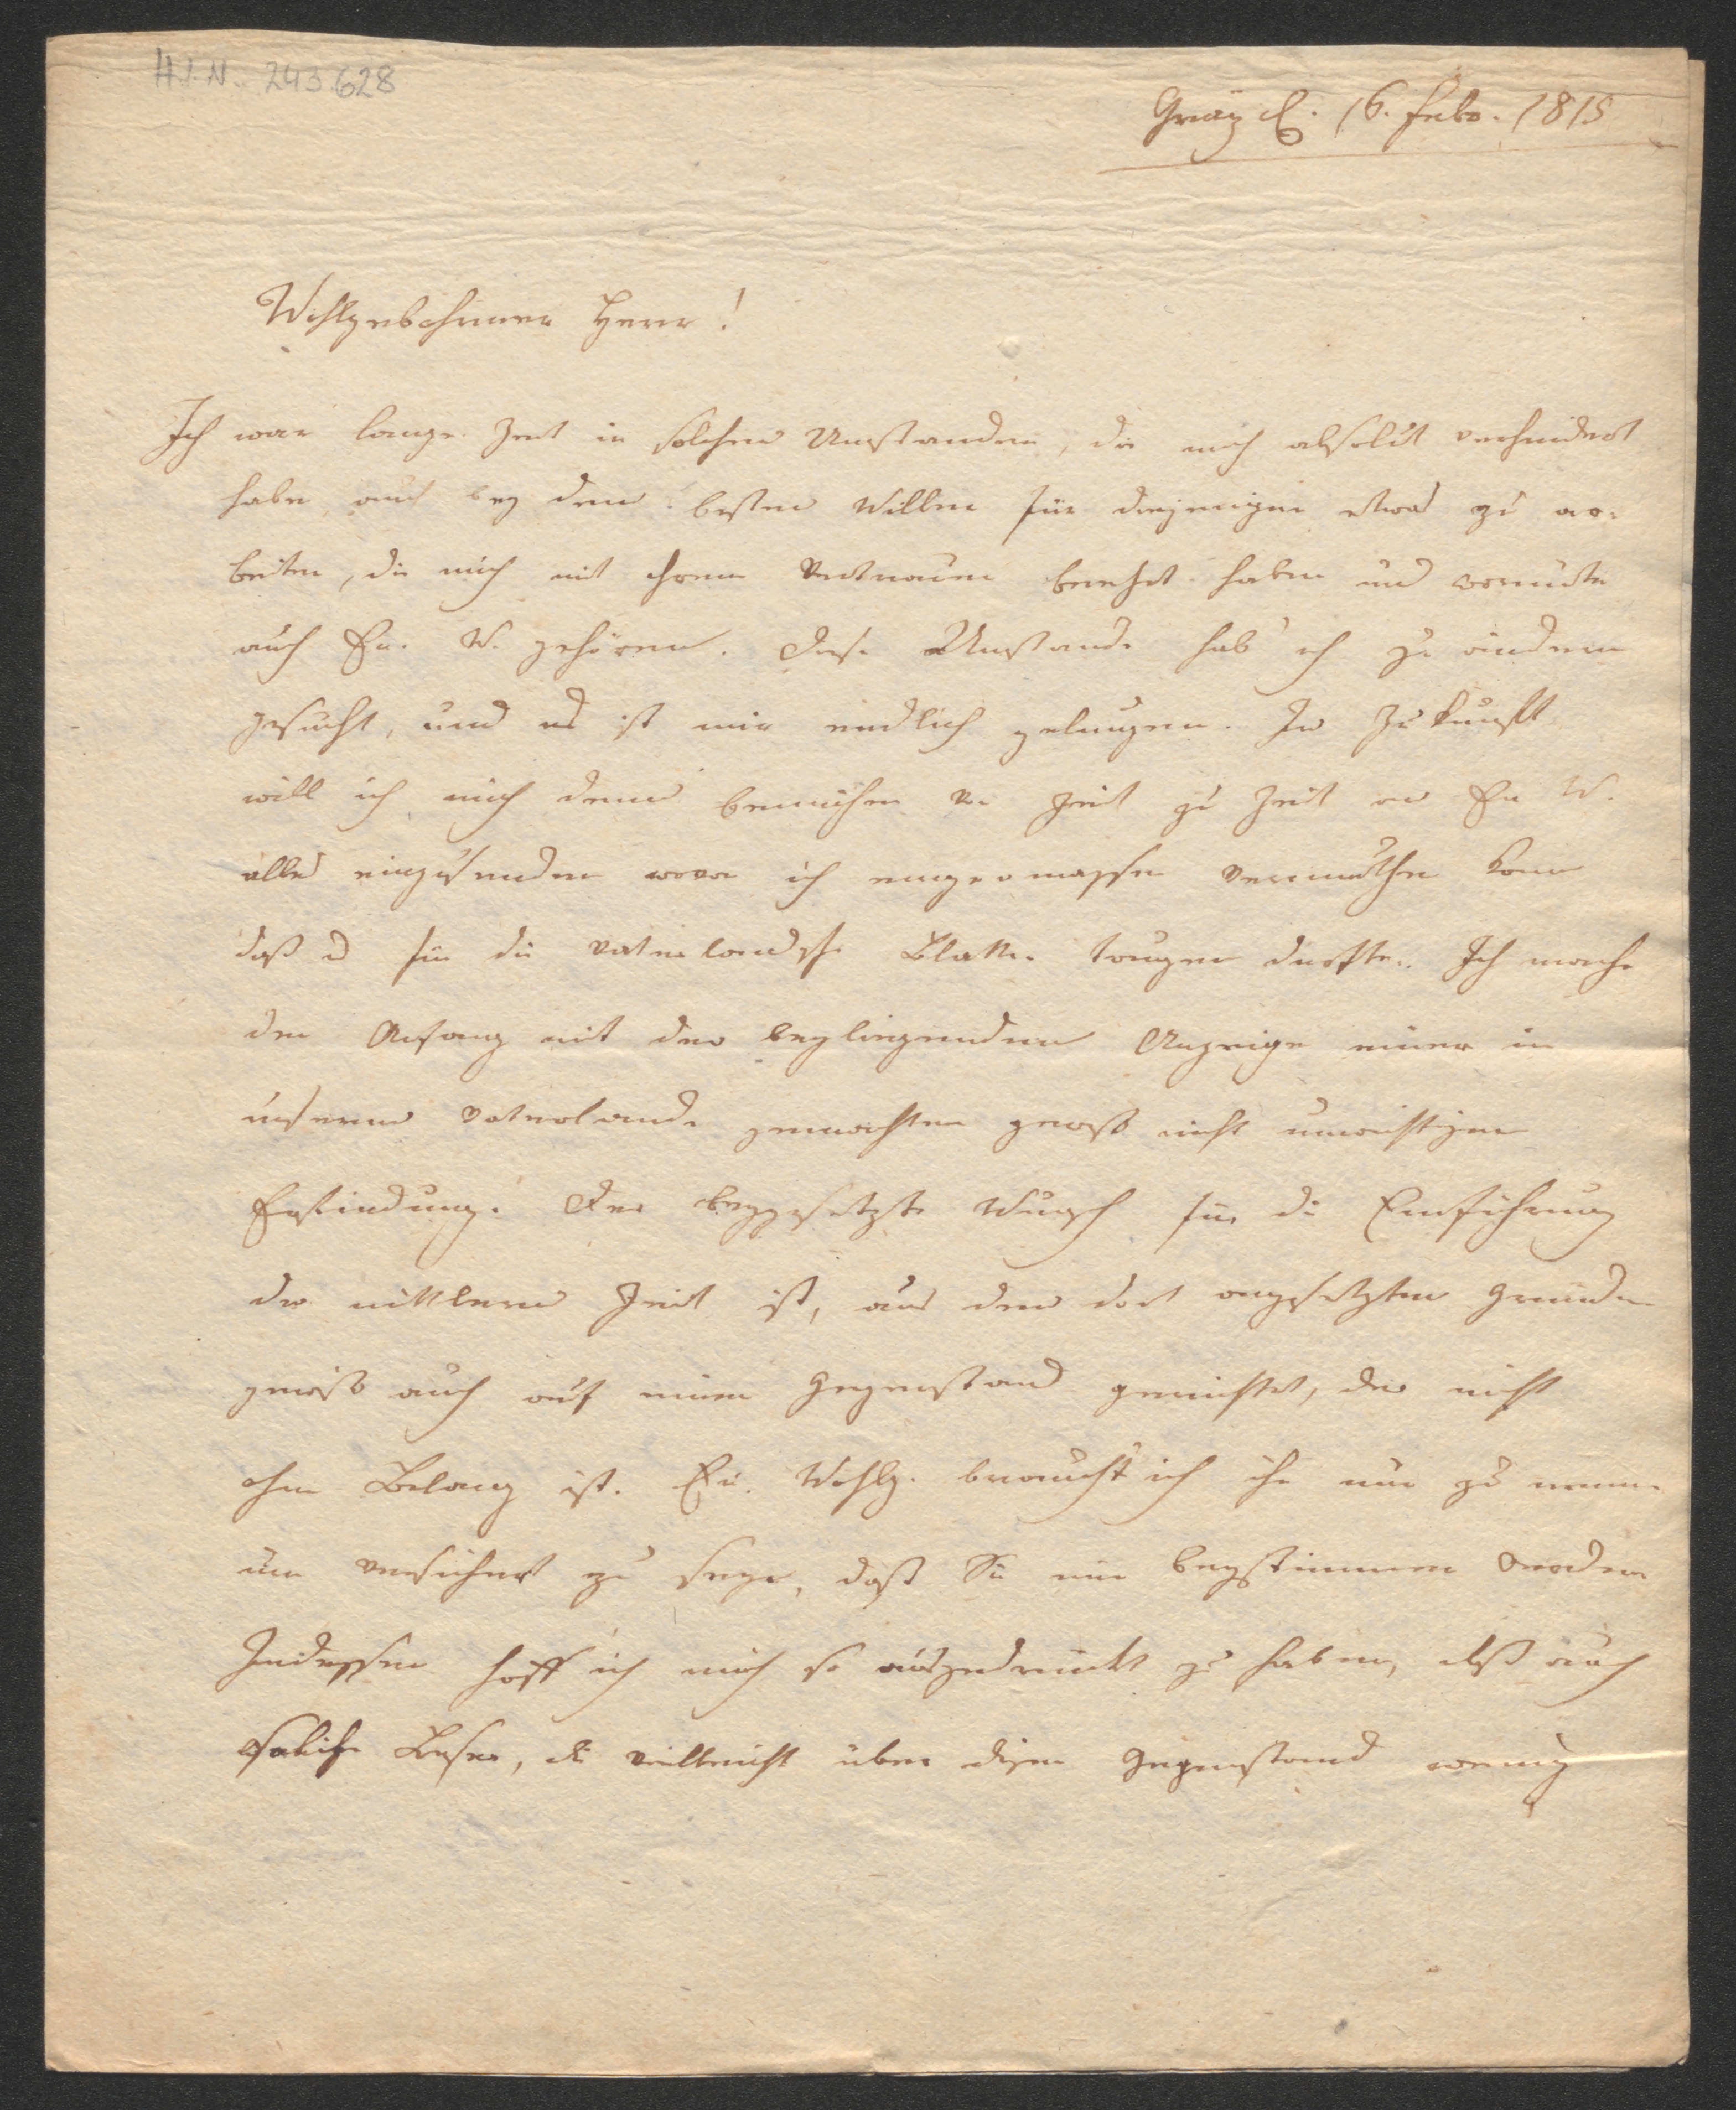 H.I.N. 243.628
Gräz d. 16. Febr. 1815
Wohlgebohrner Herr!
Ich war lange Zeit in solchen Umständen, die mich absolut verhindert
haben, auch bey dem besten Willen für diejenigen etwas zu ar-
beiten, die mich mit ihrem Vertrauen beehrt haben und worunter
auch Eu. W. gehören. Diese Umstände hab' ich zu ändern
gesucht, und es ist mir endlich gelungen. In Zukunft
will ich mich denn bemühen von Zeit zu Zeit an Eu W.
alles einzusenden wovon ich einigermassen vermuthen kann
daß es für die vaterländische Blätter taugen dürfte. Ich mache
den Anfang mit der beyliegenden Anzeige einer in
unserem Vaterlande gemachten gewiß nicht unwichtigen
Erfindung. Der beygesetzte Wunsch für die Einführung
der mittlern Zeit ist, aus den dort angesetzten Gründen
gewiß auch auf einen Gegenstand gerichtet, der nicht
ohne Belang ist. Eu. Wohlg. braucht ich ihn nur zu nennen
um versichert zu seyn, daß Sie mir beystimmen werden
Indessen hoff ich mich so ausgedrückt zu haben, daß auch
solche Leser, die vielleicht über diesen Gegenstand wenig